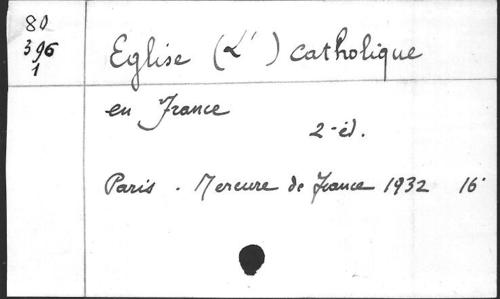 80
396
1
Eglise (L') catholique
en France
2-éd.
Paris . Mercure de France 1932 16°